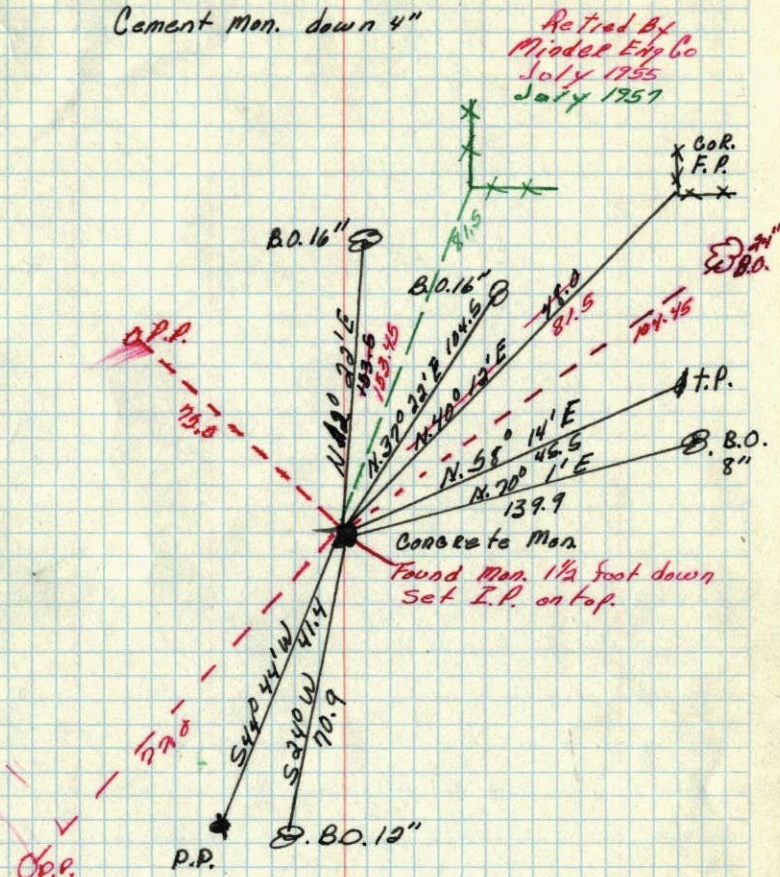 Cement Mon. down 4"
Retied By
Minder Eng Co
July 1955
July 1957
COR.
F.P.
24"
B.O.
B.O. 16"
81.5
B.O. 16"
48.0
81.5
104.45
P.P.
75.8
22' E
183.5
153.45
N. 37° 22' E 104.5
N. 40° 12' E
t.P.
N. 58° 14' E
45.5
B.O.
8"
N. 70° 1' E
139.9
Concrete Mon
Found Mon. 1½ foot down
Set I.P. on top.
S44° 44' W
41.4
S24° W
70.9
P.P.
B.O. 12"
P.P.